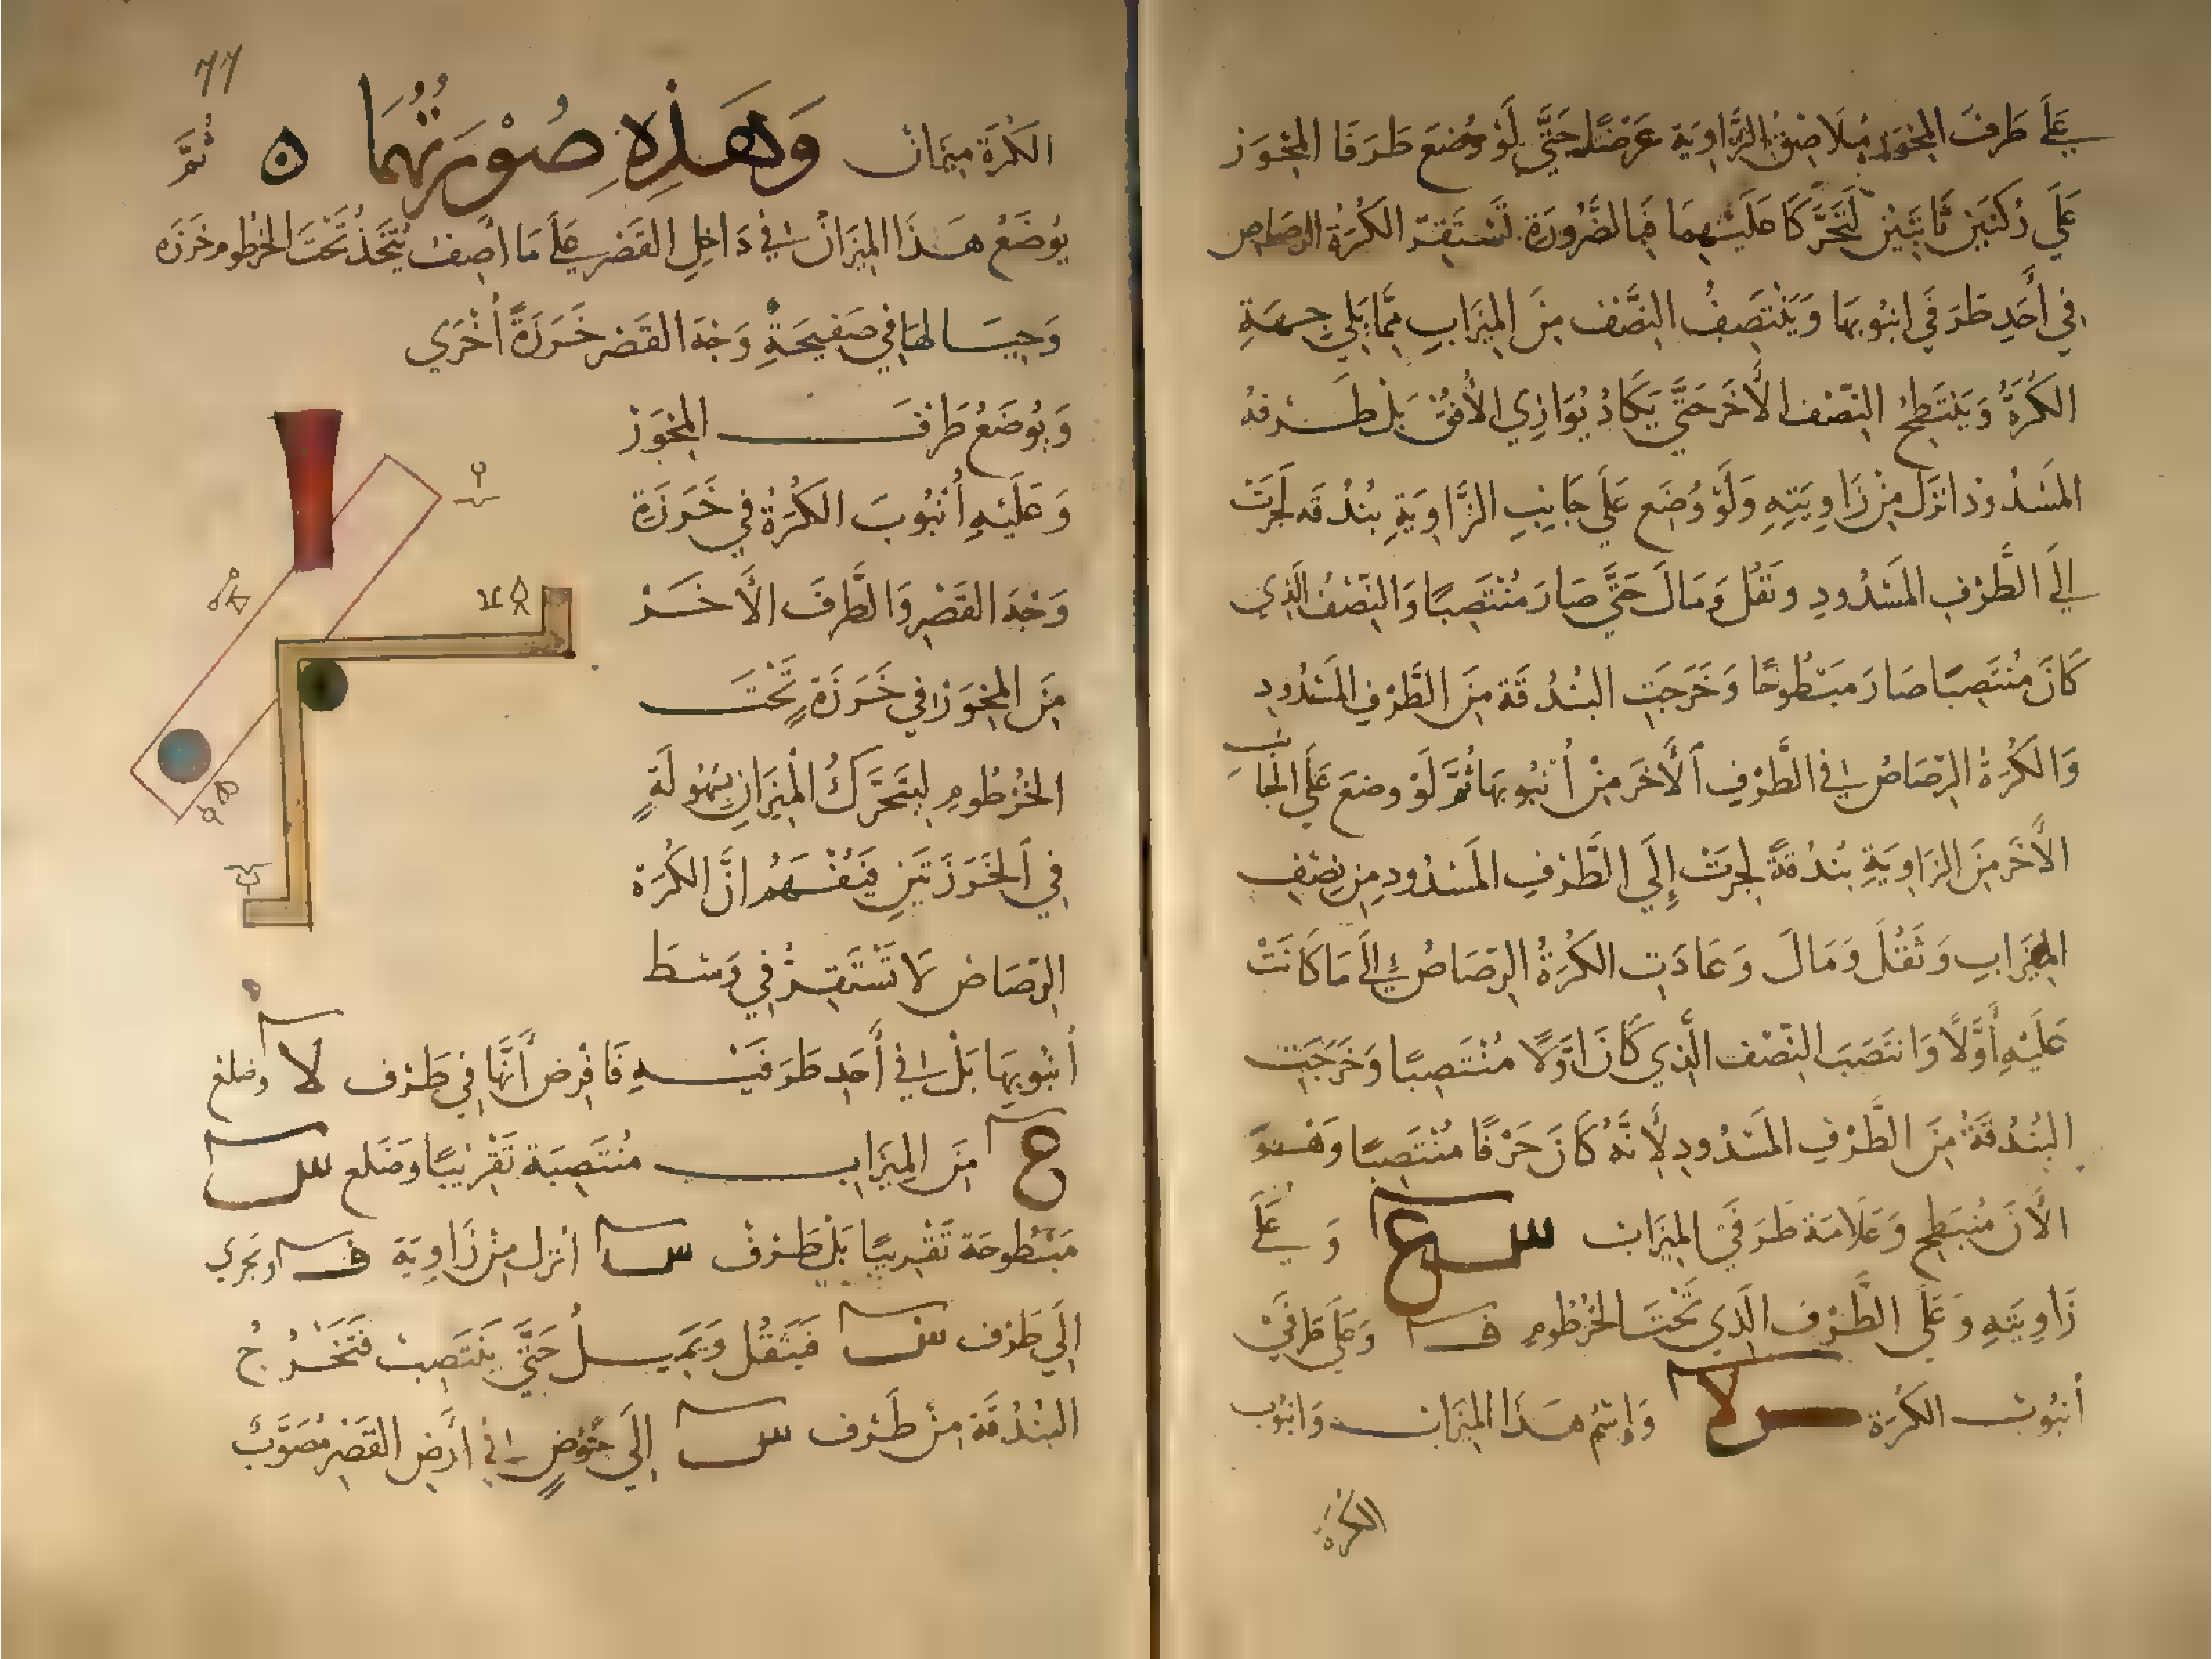 عَلَى طَرَفِ المِحْوَرِ مُلَاصِقُ الزَّاوِيَةِ عَرْضًا حَتَّى لَوْ وُضِعَ طَرَفَا المِحْوَر
عَلَى رُكْنَيْنِ ثَابِتَيْنِ لَتَحَرَّكَا عَلَيْهِمَا فَبِالضَّرُورَةِ تَسْتَقِرّ الكُرَةُ الرصَاص
فِي أَحَدِ طَرَفَيْ انْبُوبِهَا وَيَنْتَصِفُ النِّصْف مِنَ المِيزَابِ مِمَّا يَلِي جِهَةِ
الكُرَةُ وَيَنْبَطِحُ النِّصْف الأَخَر حَتَّى يَكَادُ يُوَازِي الأُفُقَ بَلْ طَرفهُ
المَسْدُود انزَل مِنْ زَاوِيَتِهِ وَلَوْ وُضِع عَلَى جَانِبِ الزَّاوِيَةِ بُنْدُقَه لَجَرَتْ
إِلَى الطَّرَفِ المَسْدُودِ وثَقُل وَمَالَ حَتَّى صَارَ مُنْتَصِبًا وَالنِّصْفُ الَّذِي
كَانَ مُنْتَصِبًا صَارَ مَبْطُوحًا وَخَرَجَتِ البُنْدُقَة مِنَ الطَّرَفِ المَسْدُودِ
وَالكُرَةُ الرّصَاصُ فِي الطَّرَفِ الأَخَر مِنْ أُنْبُوبِهَا ثُمَّ لَوْ وضعَ عَلَى الجَانِب
الأَخَر مِنَ الزَاوِيَةِ بُنْدُقَةً لَجَرَتْ إِلَى الطَّرَفِ المَسْدُودِ مِن نِصْفِ
المِيزَابِ وَثَقُلَ وَمَالَ وَعَادَتِ الكُرَةُ الرّصَاصُ إِلَى مَا كَانَتْ
عَلَيْهِ أَوَّلًا وَانتَصَبَ النِّصْف الَّذِي كَانَ اوَّلًا مُنْتَصِبًا وَخَرَجَتِ
البُنْدُقَةُ مِنَ الطَّرَفِ المَسْدُودِ لِأَنَّهُ كَانَ حَرْفًا مُنْتَصِبًا وَهُوَ
الأَنَ مُنْبَطِح وَعَلَامَة طَرَفَيِ المِيزَاب س ع وَعَلَى
زَاوِيَتِهِ وَعَلَى الطَّرَفِ الَّذِي تَحْتَ الخُرْطُومِ ف وَعَلَى طَرَفَيْ
أُنْبُوبِ الكُرَةِ لا وَاِسْمُ هَذَا المِيزَاب وَانبُوب
الكُرَةِ
٦٦
الكُرَة مِيزَان وَهَذِهِ صُوْرَتُهُمَا ه ثُمَّ
يُوضَعُ هَذَا المِيزَانُ فِي دَاخِلِ القَصْرِ عَلَى مَا أَصِفُ يُتَّخَذُ تَحْتَ الخرْطُوم خَرَزَه
وَحِيَالهَا فِي صَفِيحَةِ وَجْهِ القَصْر خَرَزَةً أُخْرَى
وَيُوضَعُ طَرَف المِحْوَر
وَعَلَيْهِ أُنْبُوبَ الكُرَةُ فِي خَرَزَةِ
وَجْهِ القَصْرِ وَالطَّرَفَ الأَخَر
مِنَ المِحْوَر فِي خَرَزَةٍ تَحْتَ
الخُرْطُومِ لِيَتَحَرَّكُ الْمِيزَانِ بِسُهُولَةٍ
فِي الخَرَزَتَيْنِ فَيُفْهَمُ انَّ الكُرَة
الرّصَاصْ لَا تَسْتَقِرُّ فِي وَسَط
أُنْبُوبِهَا بَلْ فِي أَحَدِ طَرَفَيْهِ فَافْرِض أَنَّهَا فِي طَرَفِ لا وضلع
ع مِنَ المِيزَابِ مُنْتَصِبَة تَقْرِيبًا وَضَلع س
مَبْطُوحَة تَقْرِيبًا بَلْ طَرَف س انزل مِنْ زَاوِيَة ف وتَجْرِي
إِلَى طَرَف س فَيَثْقُل وَيَمِيلُ حَتَّى يَنتَصِبْ فَتَخْرُجُ
البُنْدُقَة مِنْ طَرَفِ س إِلَى حَوْضٍ فِي أَرْضِ القَصْرِ مُصَوَّبٌ